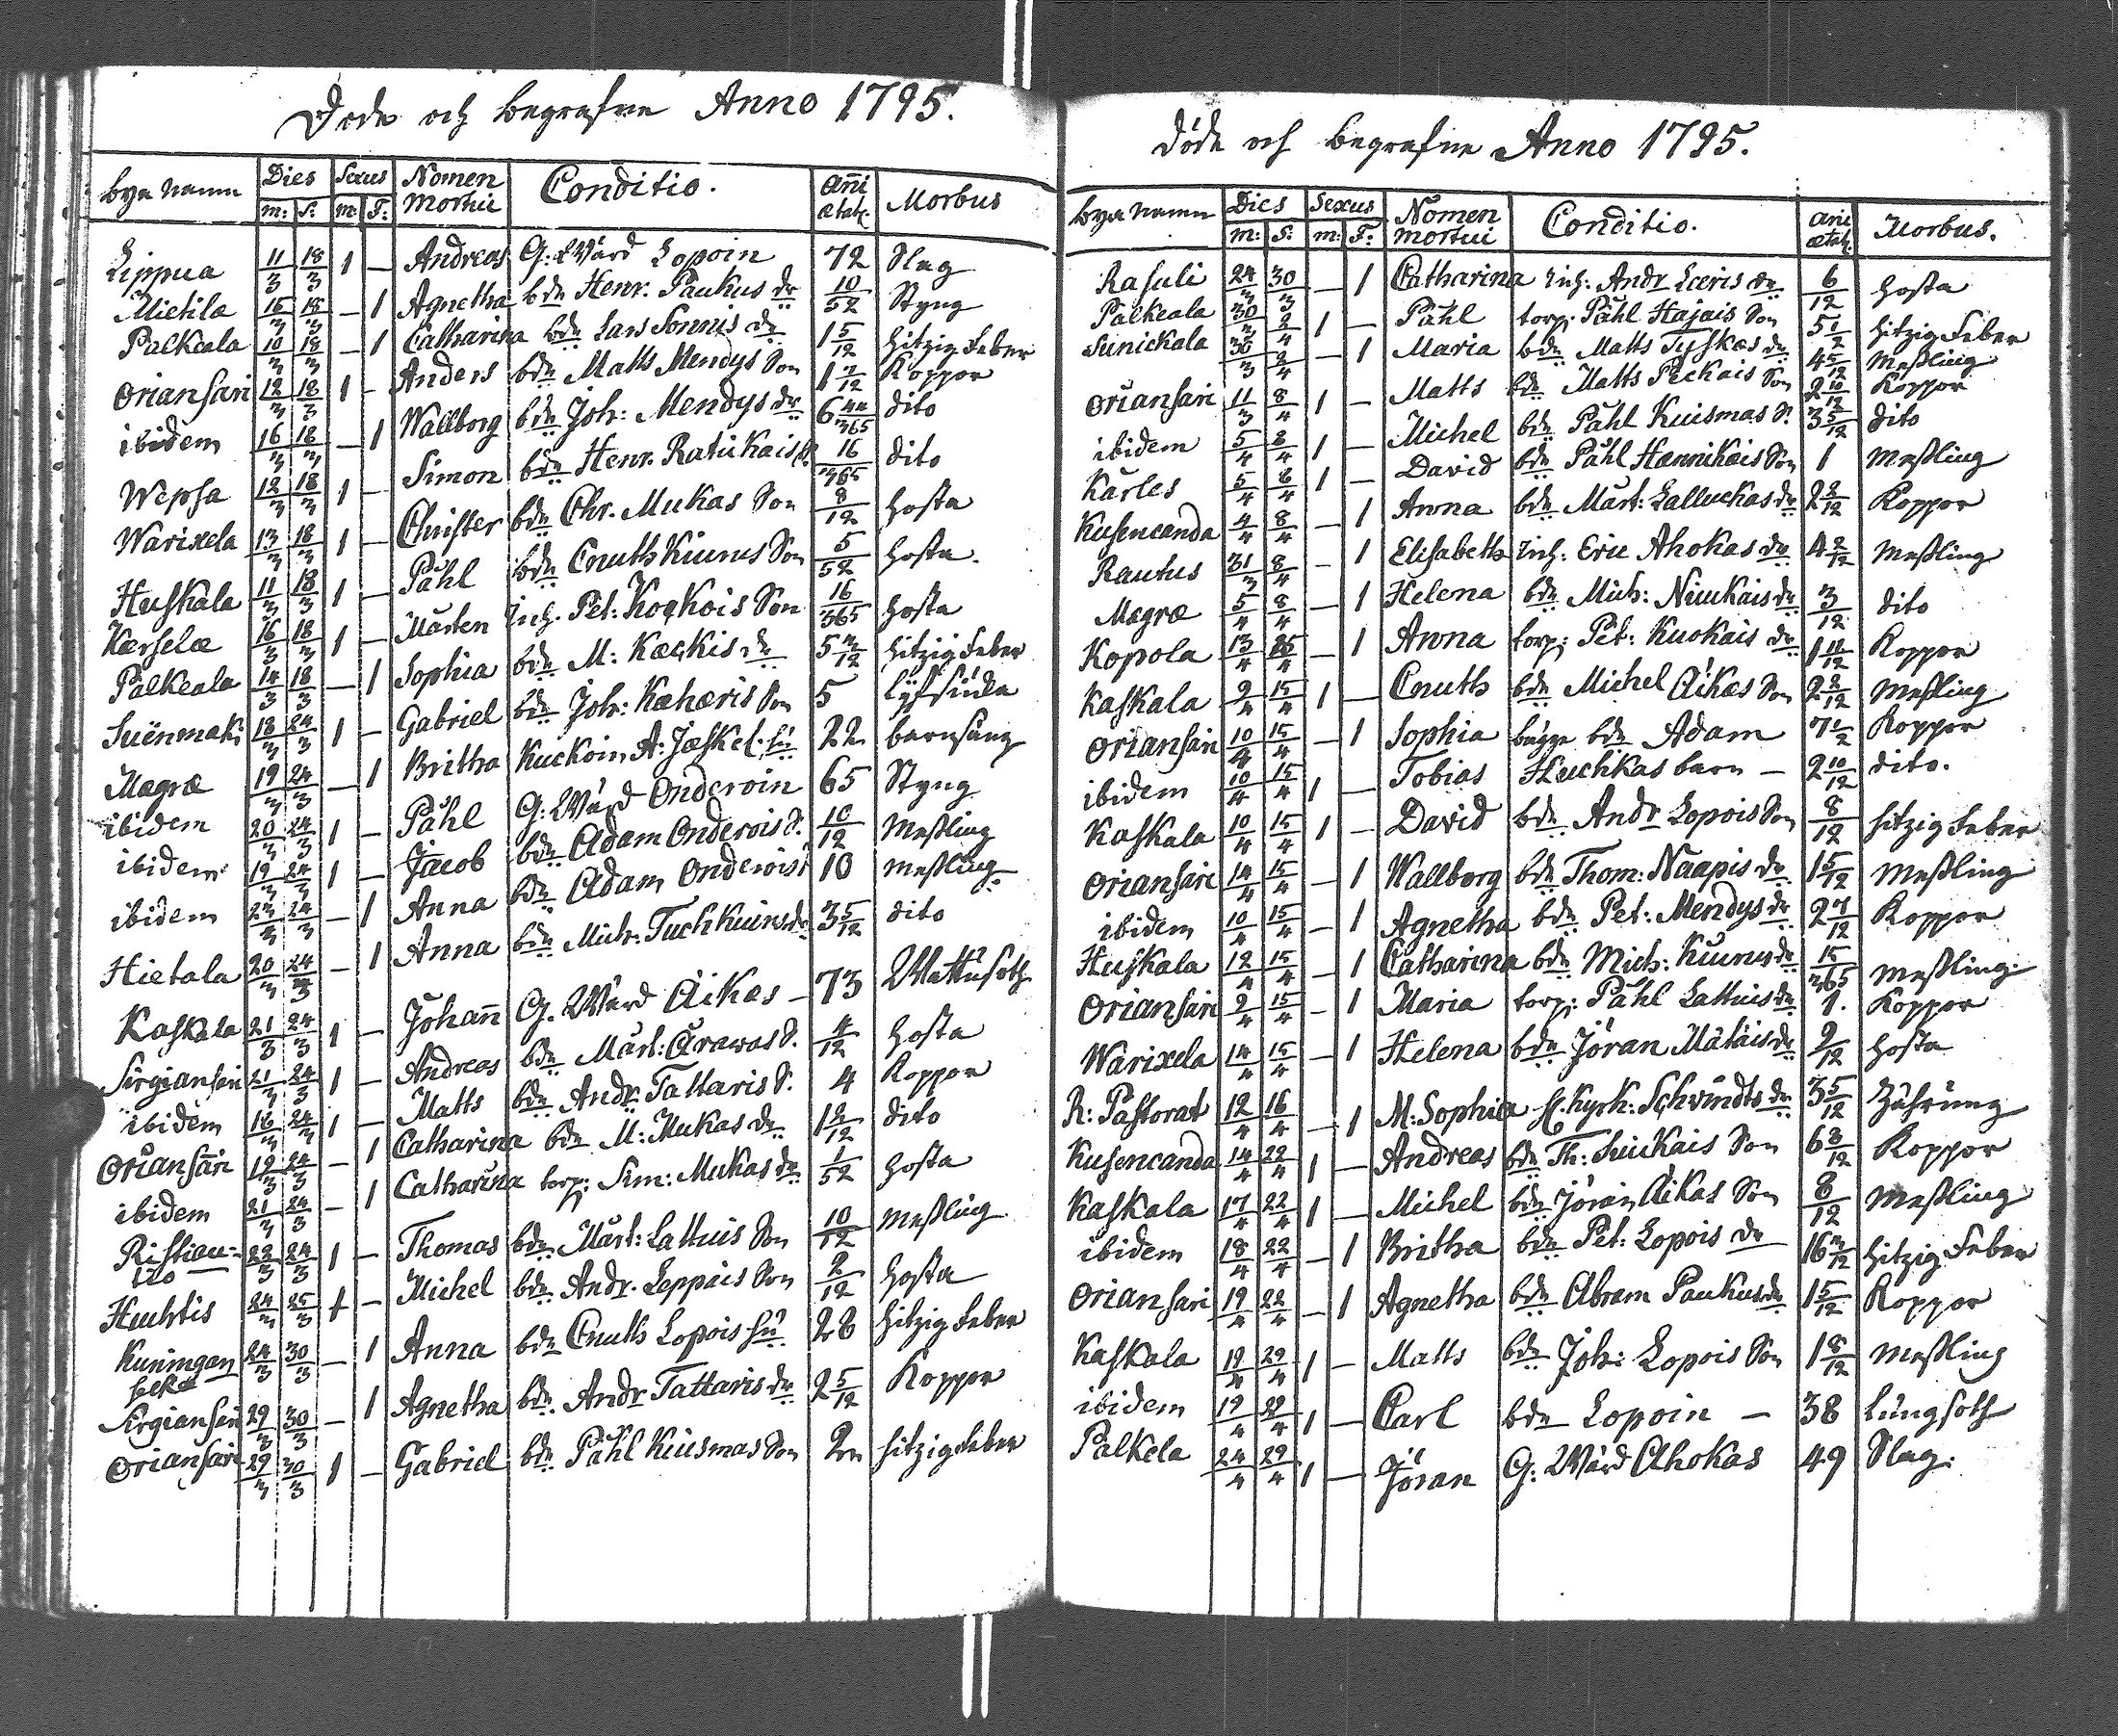 Döde och begrafne Anno 1795.
bya namn Dies Sexus Nomen mortui Conditio. añi ætat. Morbus
m: S: m: F:
Lippua 11/3 18/3 1 — Andreas G: Wärd Lopoin 72 Slag
Mietila 15/3 18/3 — 1 Agnetha bdn Henr. Paukus dr 10/52 Styng
Palkeala 10/3 18/3 — 1 Catharina bdn Lars Sonnis dr 1 5/12 hitzig feber
Oriansari 12/3 18/3 1 — Anders bdn Matts Mendys Son 1 7/12 Koppor
ibidem 16/3 18/3 — 1 Wallborg bdn Joh: Mendys dr 6 44/365 dito
Wepsa 12/3 18/3 1 — Simon bdn Henr. Ratukais S. 16/365 dito
Warixela 13/3 18/3 1 — Christer bdn Chr. Mukas Son 8/12 hosta
Huskala 11/3 18/3 1 — Påhl bdn Cnuth Kiurus Son 5/52 hosta.
Kærselæ 16/3 18/3 1 — Mårten inh. Pet: Kockois Son 16/365 hosta
Palkeala 14/3 18/3 — 1 Sophia bdn M: Kæckis dr 5 7/12 hitzig feber
Suenmaki 18/3 24/3 1 — Gabriel bdn Joh: Kæhæris Son 5 lyfsiuka
Mægræ 19/3 24/3 — 1 Britha Kuckoin A: Jæskel. hu 22 barnsäng
ibidem 20/3 24/3 1 — Påhl G: Wärd Onderoin 65 Styng
ibidem 19/3 24/3 1 — Jacob bdn Adam Onderois S. 10/12 Meßling
ibidem 23/3 24/3 — 1 Anna bdn Adam Onderois 10 meßling
Hietala 20/3 24/3 — 1 Anna bdn Mich: Tuchkuins dr 3 5/12 dito
Kaskala 21/3 24/3 1 — Johañ G. Wärd Äikæs — 73 Wattusoth
Sirgiansari 21/3 24/3 1 — Andreas bdn Mårt: Orawas S. 4/12 hosta
ibidem 16/3 24/3 1 — Matts bdn Andr. Tattaris S. 4 Koppor
Oriansari 19/3 24/3 — 1 Catharina bdn M: Mukas dr 1 2/12 dito
ibidem 21/3 24/3 — 1 Catharina torp: Sim: Mukas dr 1/52 hosta
Ristiau= 22/3 24/3 1 — Thomas bdn Mårt: Lattuis Son 10/12 meßling
Huuhtis 24/3 25/3 1 — Michel bdn Andr. Leppäis Son 2/12 hosta
Kuningan 24/3 30/3 — 1 Anna bdn Cnuth Lopois hu 28 hitzig feber
Sirgiansari 29/3 30/3 — 1 Agnetha bdn Andr Tattaris dr 2 5/12 Koppor
Oriansari 29/3 30/3 1 — Gabriel bdn Påhl Kuismas Son 2 hitzig feber
Döde och begrafne Anno 1795.
bya namn Dies Sexus Nomen mortui Conditio. añi ætat. Morbus.
m: S: m: F:
Rasuli 24/3 30/3 — 1 Catharina inh: Andr Lceris dr 6/12 hosta
Palkeala 30/3 2/4 1 — Påhl torp: Påhl Hajais Son 5 1/2 hitzig feber
Sunickala 30/3 2/4 — 1 Maria bdn Matts Tyskæs dr 4 5/12 meßling
Oriansari 11/3 8/4 1 — Matts bdn Matts Peckais Son 2 10/12 Koppor
ibidem 5/4 8/4 1 — Michel bdn Påhl Kuismas S. 3 5/12 dito
Karles 5/4 8/4 1 — David bdn Påhl Hannikais Son 1 meßling
Kusencanda 4/4 8/4 — 1 Anna bdn Mårt: Lalluckas dr 2 2/12 Koppor
Rautus 31/3 8/4 — 1 Elisabeth inh: Eric Ahokas dr 4 2/12 meßling
Mægræ 5/4 8/4 — 1 Helena bdn Mich: Niuckais dr 3/12 dito
Kopola 13/4 25/4 — 1 Anna torp: Pet: Kuokais dr 1 11/12 Koppor
Kaskala 9/4 15/4 1 — Cnuth bdn Michel Äikæs Son 2 2/12 meßling
Oriansari 10/4 15/4 — 1 Sophia bägge bdn Adam 7 1/2 Koppor
ibidem 10/4 15/4 1 — Tobias Huchkas barn — 2 10/12 dito.
Kaskala 10/4 15/4 1 — David bdn Andr Lopois Son 8/12 hitzig feber
Oriansari 14/4 15/4 — 1 Wallborg bdn Thom: Naapis dr 1 5/12 meßling
ibidem 10/4 15/4 — 1 Agnetha bdn Pet: Mendys dr 2 7/12 Koppor
Huskala 12/4 15/4 — 1 Catharina bdn Mich: Kiurus dr 15/365 meßling
Oriansari 9/4 15/4 — 1 Maria torp: Påhl Lattuis dr 1. Koppor
Warixela 14/4 15/4 — 1 Helena bdn Jöran Mätäis dr 9/12 hosta
R: Pastorat 12/4 16/4 — 1 M: Sophia H. Kyrk: Schvindts dr 3 5/12 Zährung
Kusencanda 14/4 22/4 1 — Andreas bdn Th: Suikais Son 6 8/12 Koppor
Kaskala 17/4 22/4 1 — Michel bdn Jöran Äikas Son 8/12 meßling
ibidem 18/4 22/4 — 1 Britha bdn Pet: Lopois dr 16 3/12 hitzig feber
Oriansari 19/4 22/4 — 1 Agnetha bdn Abram Paukus dr 1 5/12 Koppor
Kaskala 19/4 29/4 1 — Matts bdn Joh: Lopois Son 1 8/12 meßling
ibidem 19/4 29/4 1 — Carl bdn Lopoin — 38 lungsoth
Palkela 24/4 29/4 1 — Jöran G: Wärd Ahokas 49 Slag.